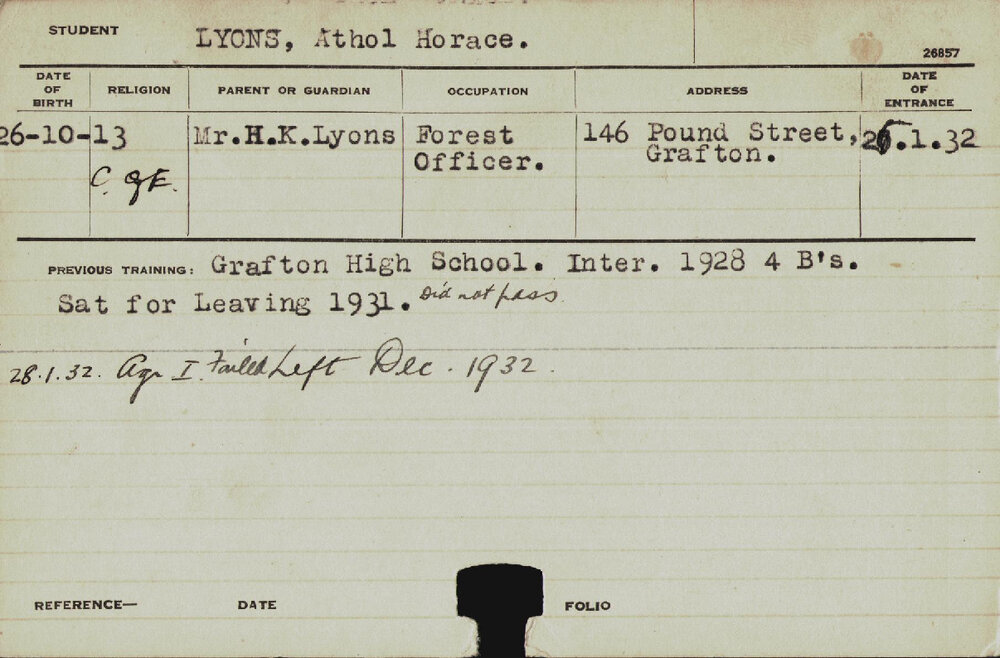 STUDENT LYONS, Athol Horace.
26857
DATE OF BIRTH RELIGION PARENT OR GUARDIAN OCCUPATION ADDRESS DATE OF ENTRANCE
26-10-13 Mr.H.K.Lyons Forest 146 Pound Street, .1.32
Officer. Grafton.
C of E.
PREVIOUS TRAINING: Grafton High School. Inter. 1928 4 B's.
Sat for Leaving 1931. Did not pass
28.1.32. Agr I. Failed Left Dec. 1932.
REFERENCE— DATE FOLIO